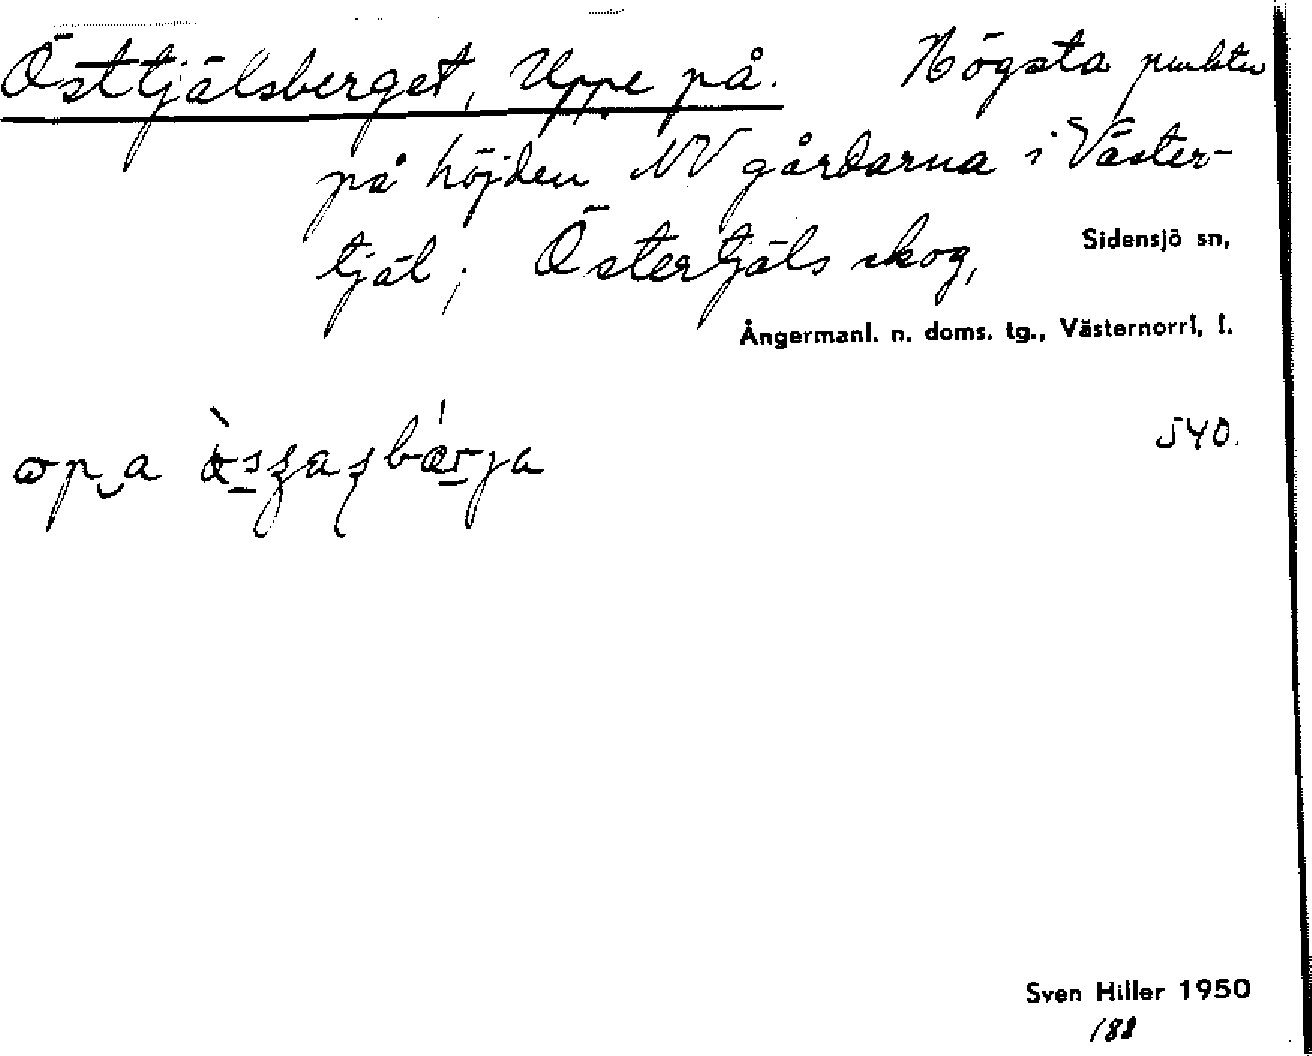 Östtjälsberget, Uppe på. Högsta punkten
på höjden NV gårdarna i Väster-
tjäl; Östertjäls skog,
Sidensjö sn,
Ångermanl. n. doms. tg., Västernorrl. l.
540.
Sven Hiller 1950
188